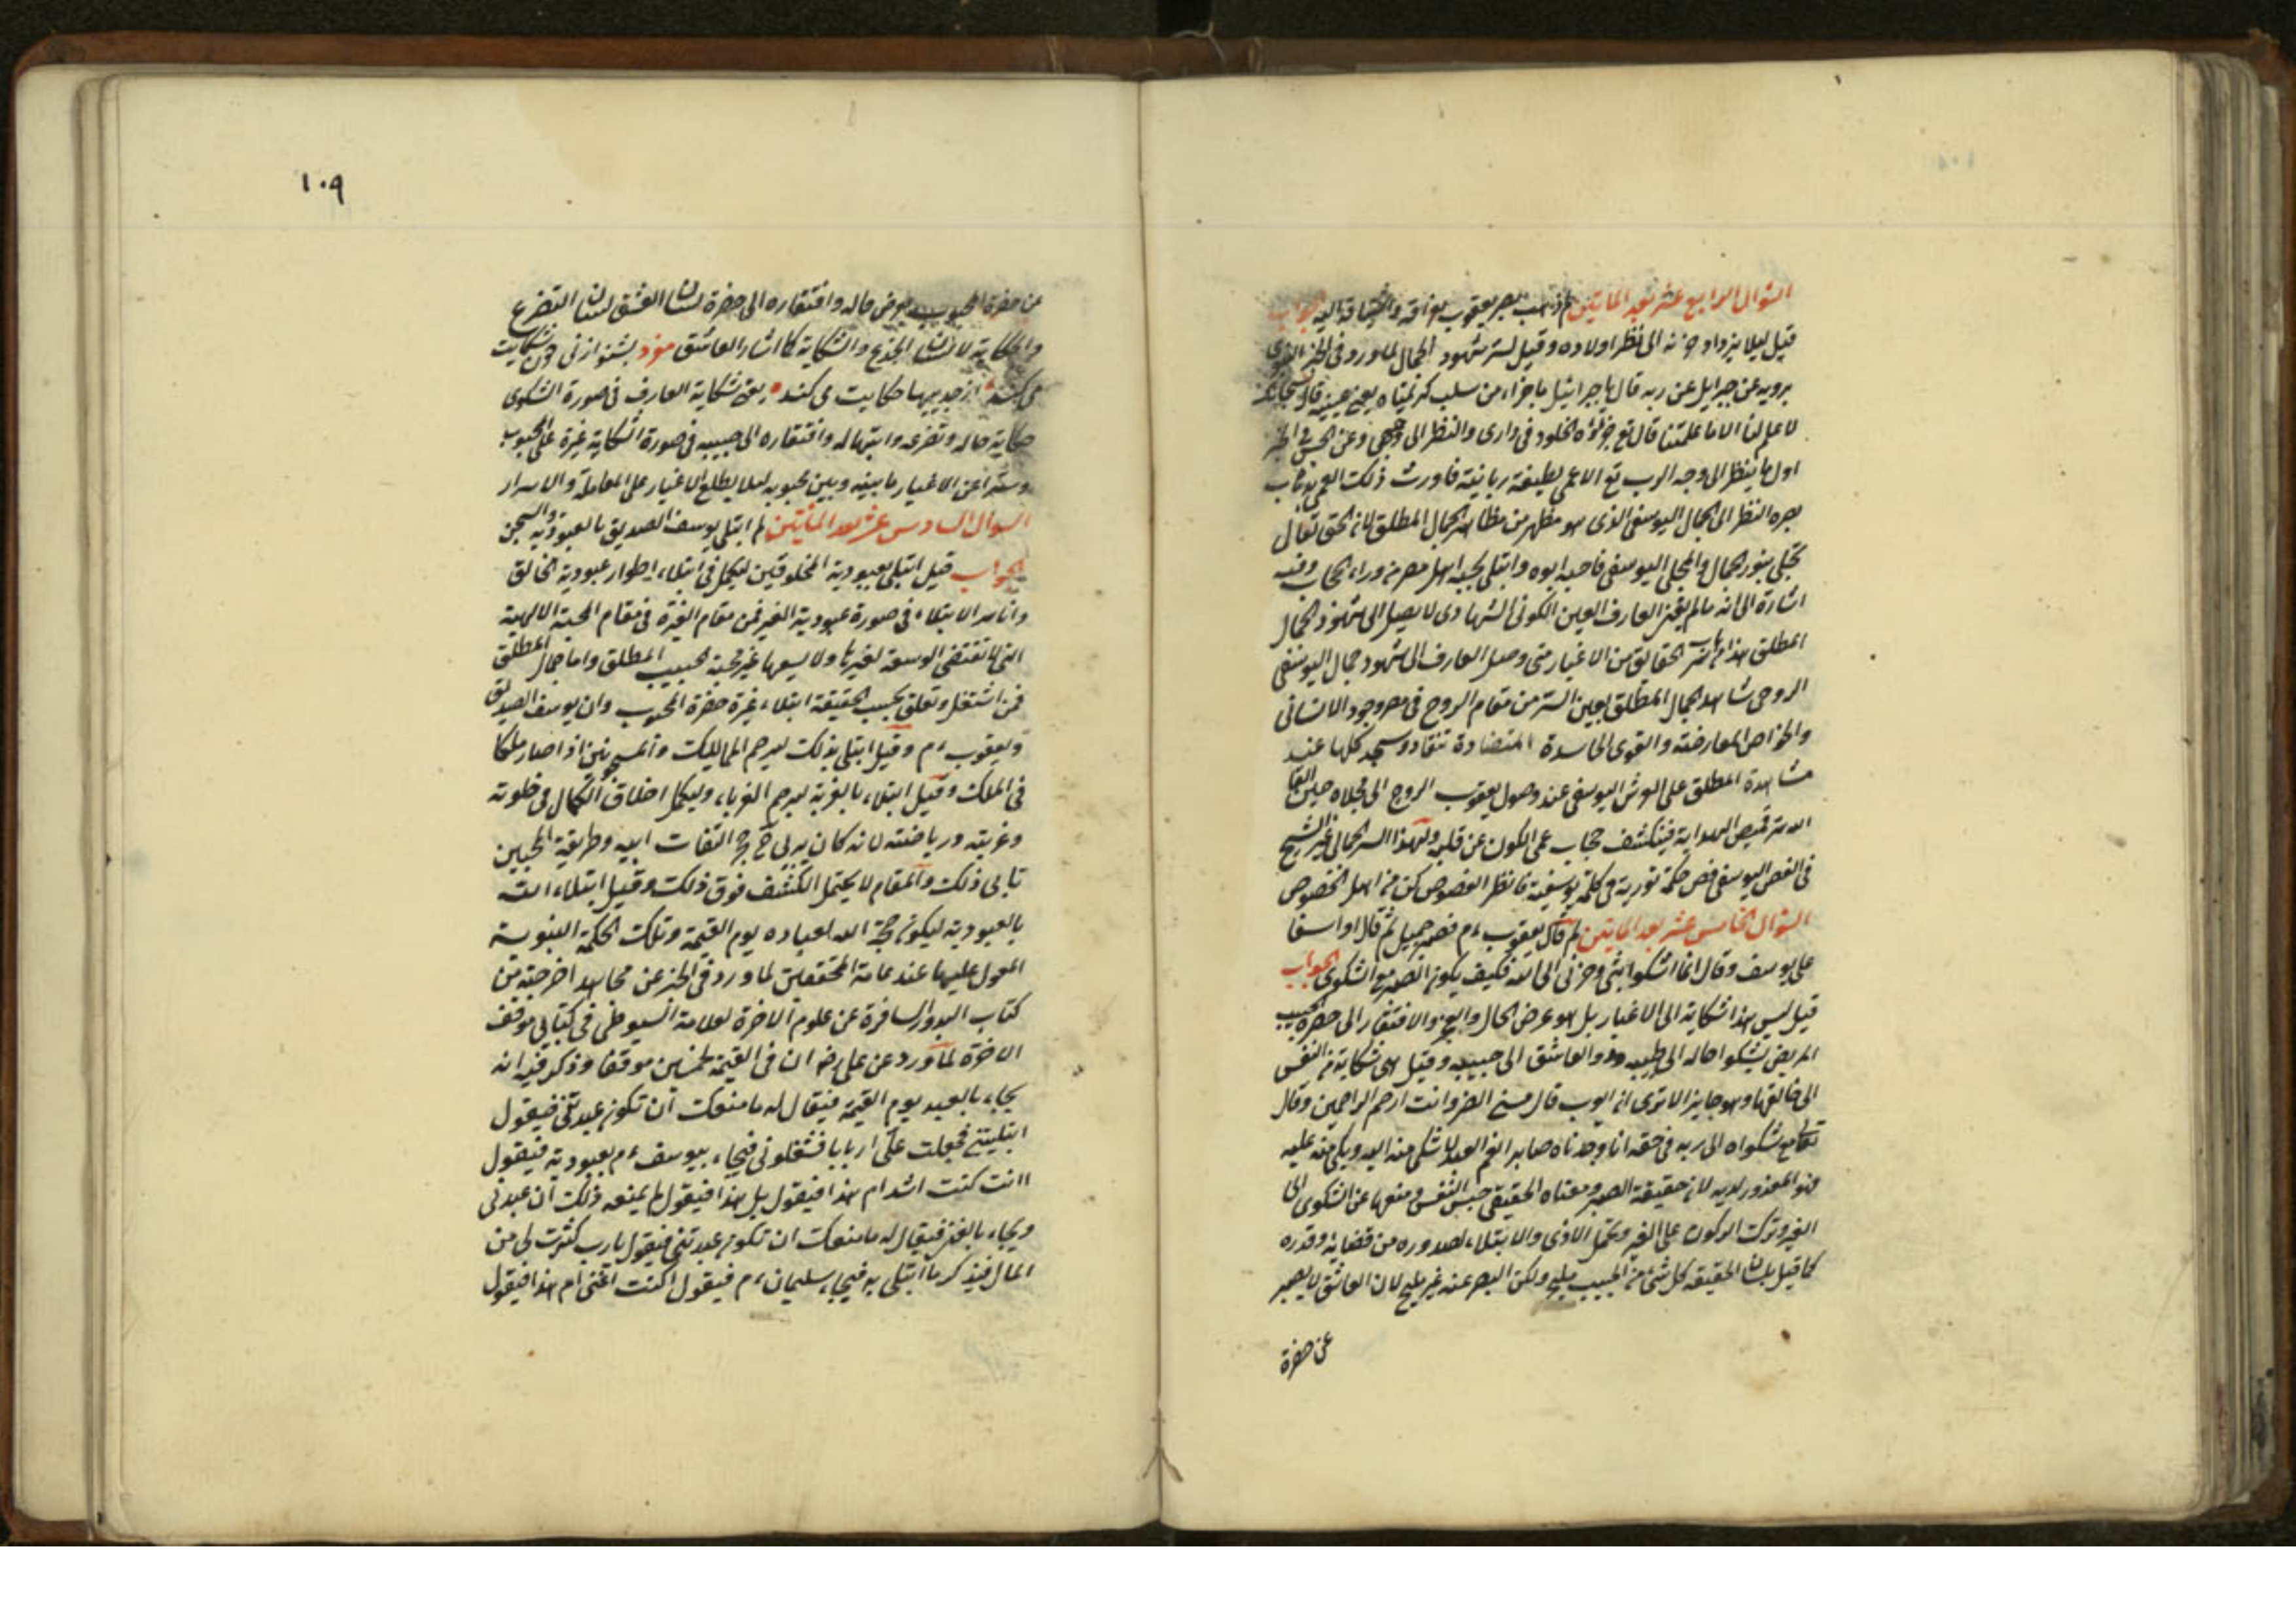 السؤال الرابع عشر بعد المايتين لم ذهب بصر يعقوب بفراقه واشتياقه اليه الجواب
قيل ليلا يزداد حزنه الى نظر اولاده وقيل لستر شهود الجمال لما ورد في الخبر النبوي
يرويه عن جبرايل عن ربه قال يا جبرائيل ما جزاء من سلبت كريمتاه يعني عينيه قال سبحانك
لا علم لنا الا ما علمتنا قال تع جزاؤه الخلود في داري والنظر الى وجهي وعن الحسن في الخبر
اول ما ينظر الى وجه الرب تع الاعمى لطيفة ربانية فاورث ذلك العمى حجاب
بصره النظر الى الجمال اليوسفي الذي هو مظهر من مظاهر الجمال المطلق لان الحق تعالى
تجلى بنور جمال والمجلى اليوسفي فاحبه ابوه وابتلى بحبه اهل مصر من وراء الحجاب وفيه
اشارة الى انه ما لم يغن العارف العين الكوني الشهادى لا يصل الى شهود الجمال
المطلق هذا من سر الحقائق من الاغيار متى وصل العارف الى شهود جمال اليوسفي
الروحى شاهد الجمال المطلق بعين السر من مقام الروح في مصر وجود الانسانى
والخواص المعارضة والقوى الحاسدة المتضادة تنقاد وسجد كلها عند
مشاهدة المطلق على العرش اليوسفي عند وصول يعقوب الروح الى مجلاه حين القاء
الستر قميص الهداية فينكشف حجاب عمى الكون عن قلبه ولهذا السر الجمالي عبر الشيخ
في الفص اليوسفي فص حكمة نورية في كلمة يوسفية فانظر الفصوص كن من اهل الخصوص
السؤال الخامس عشر بعد المايتين لم قال يعقوب ءم فصبر جميل ثم قال اواسفا
على يوسف وقال انما اشكو ابثى وحزنى الى الله فكيف يكون الصبر مع الشكوى الجواب
قيل ليس هذا شكاية الى الاغيار بل هو عرض الحال والعجز والافتقار الى حضرة الحبيب
المريض يشكو احاله الى طبيبه والعاشق الى حبيبه وقيل هى شكاية من النفس
الى خالقها وهو جايز الا ترى ان ايوب قال مسنى الضر وانت ارحم الراحمين وقال
تعالى مع شكواه الى ربه في حقه انا وجدناه صابرا نعم العبد لما شكى منه اليه ويبكى منه عليه
فهو المعذور لديه لان حقيقة الصبر ومعناه الحقيقى حبس النفس ومنعها عن الشكوى الى
الغير وترك الركون على الغير وتحمل الاذى والابتلاء لصدوره من قضائه وقدره
كما قيل بلسان الحقيقة كل شئ من الحبيب مليح ولكن الصبر عنه غير مليح لان العاشق لا يصبر
عن حضرة
١٠٩
عن حضرة المحبوب بعرض حاله وافتقاره الى حضرة لسان العشق لسان التضرع
والحكاية لا لسان الجزع والشكاية كما اشار العاشق مفرد بشنو از نى چون شكايت
مى كند از جديها حكايت مى كند يعنى شكاية العارف في صورة الشكوى
حكاية حاله وتضرعه وابتهاله وافتقاره الى حبيبه في صورة الشكاية غيرة على المحبوب
وسترا عن الاغيار ما بينه وبين محبوبه ليلا يطلع الاغيار على المعاملة والاسرار
السؤال السادس عشر بعد المائتين لم ابتلى يوسف الصديق بالعبودية والسجن
الجواب قيل ابتلى بعبودية المخلوقين ليكمل في ابتلاء اطوار عبودية الخالق
واما سر الابتلاء في صورة عبودية الغير فمن مقام الغيرة في مقام المحبة الالهية
التى لا تقتضى الوسعة لغيرها ولا يسعها غير محبة الحبيب المطلق واما جمال المطلق
فمن اشتغل وتعلق بحسب الحقيقة ابتلاء غيرة حضرة المحبوب وان يوسف الصديق
ويعقوب ءم وقيل ابتلى بذلك ليرحم المماليك والمسجونين اذا صار ملكا
في الملك وقيل ابتلاء بالغربة ليرحم الغرباء وليكمل اخلاق الكمال في خلوته
وغربته ورياضته لانه كان يربى في حجر التفات ابيه وطريقة المحبين
تابى ذلك والمقام لا يحتمل الكشف فوق ذلك وقيل ابتلاء الله
بالعبودية ليكون حجة الله لعباده يوم القيمة وتلك الحكمة النبوية
المعول عليها عند عامة المحققين لما ورد في الخبر عن مجاهد اخرجته من
كتاب البدور السافرة عن علوم الاخرة لعلامة السيوطى في كتابى موقف
الاخرة لما ورد عن على رض ان في القيمة لخمسين موقفا وذكر فيه انه
يجاء بالعبد يوم القيمة فيقال له ما منعك ان تكون عبدتنى فيقول
ابتليتنى فجعلت على اربابا فشغلونى فيجاء بيوسف ءم بعبوديته فيقول
اانت كنت اشد ام هذا فيقول بل هذا فيقول لم يمنعه ذلك ان عبدنى
ويجاء بالغنى فيقال له ما منعك ان تكون عبدتنى فيقول يا رب كثرت لى من
المال فيذكر ما ابتلى به فيجاء سليمان ءم فيقول اكنت اغنى ام هذا فيقول